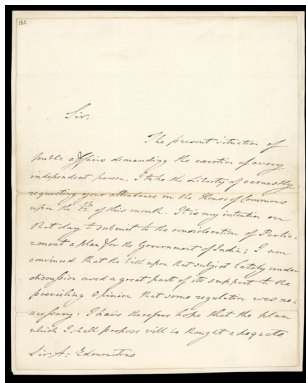 Sir,
The present situation of
public affairs demanding the exertion of every
independent person. I take the Liberty of earnestly
requesting your attendance in the House of Commons
upon the of this month. It is my intention on
that day to submit to the consideration of Parlia-
ment a plan for the Government of India; I am
convinced that the Bill upon that subject lately under
discussion owed a great part of its support to the
prevailing opinion that some regulation was ne-
cessary. I have therefore hope that the plan
which I shall propose will be thought adequate
Sir A. Edmonstone